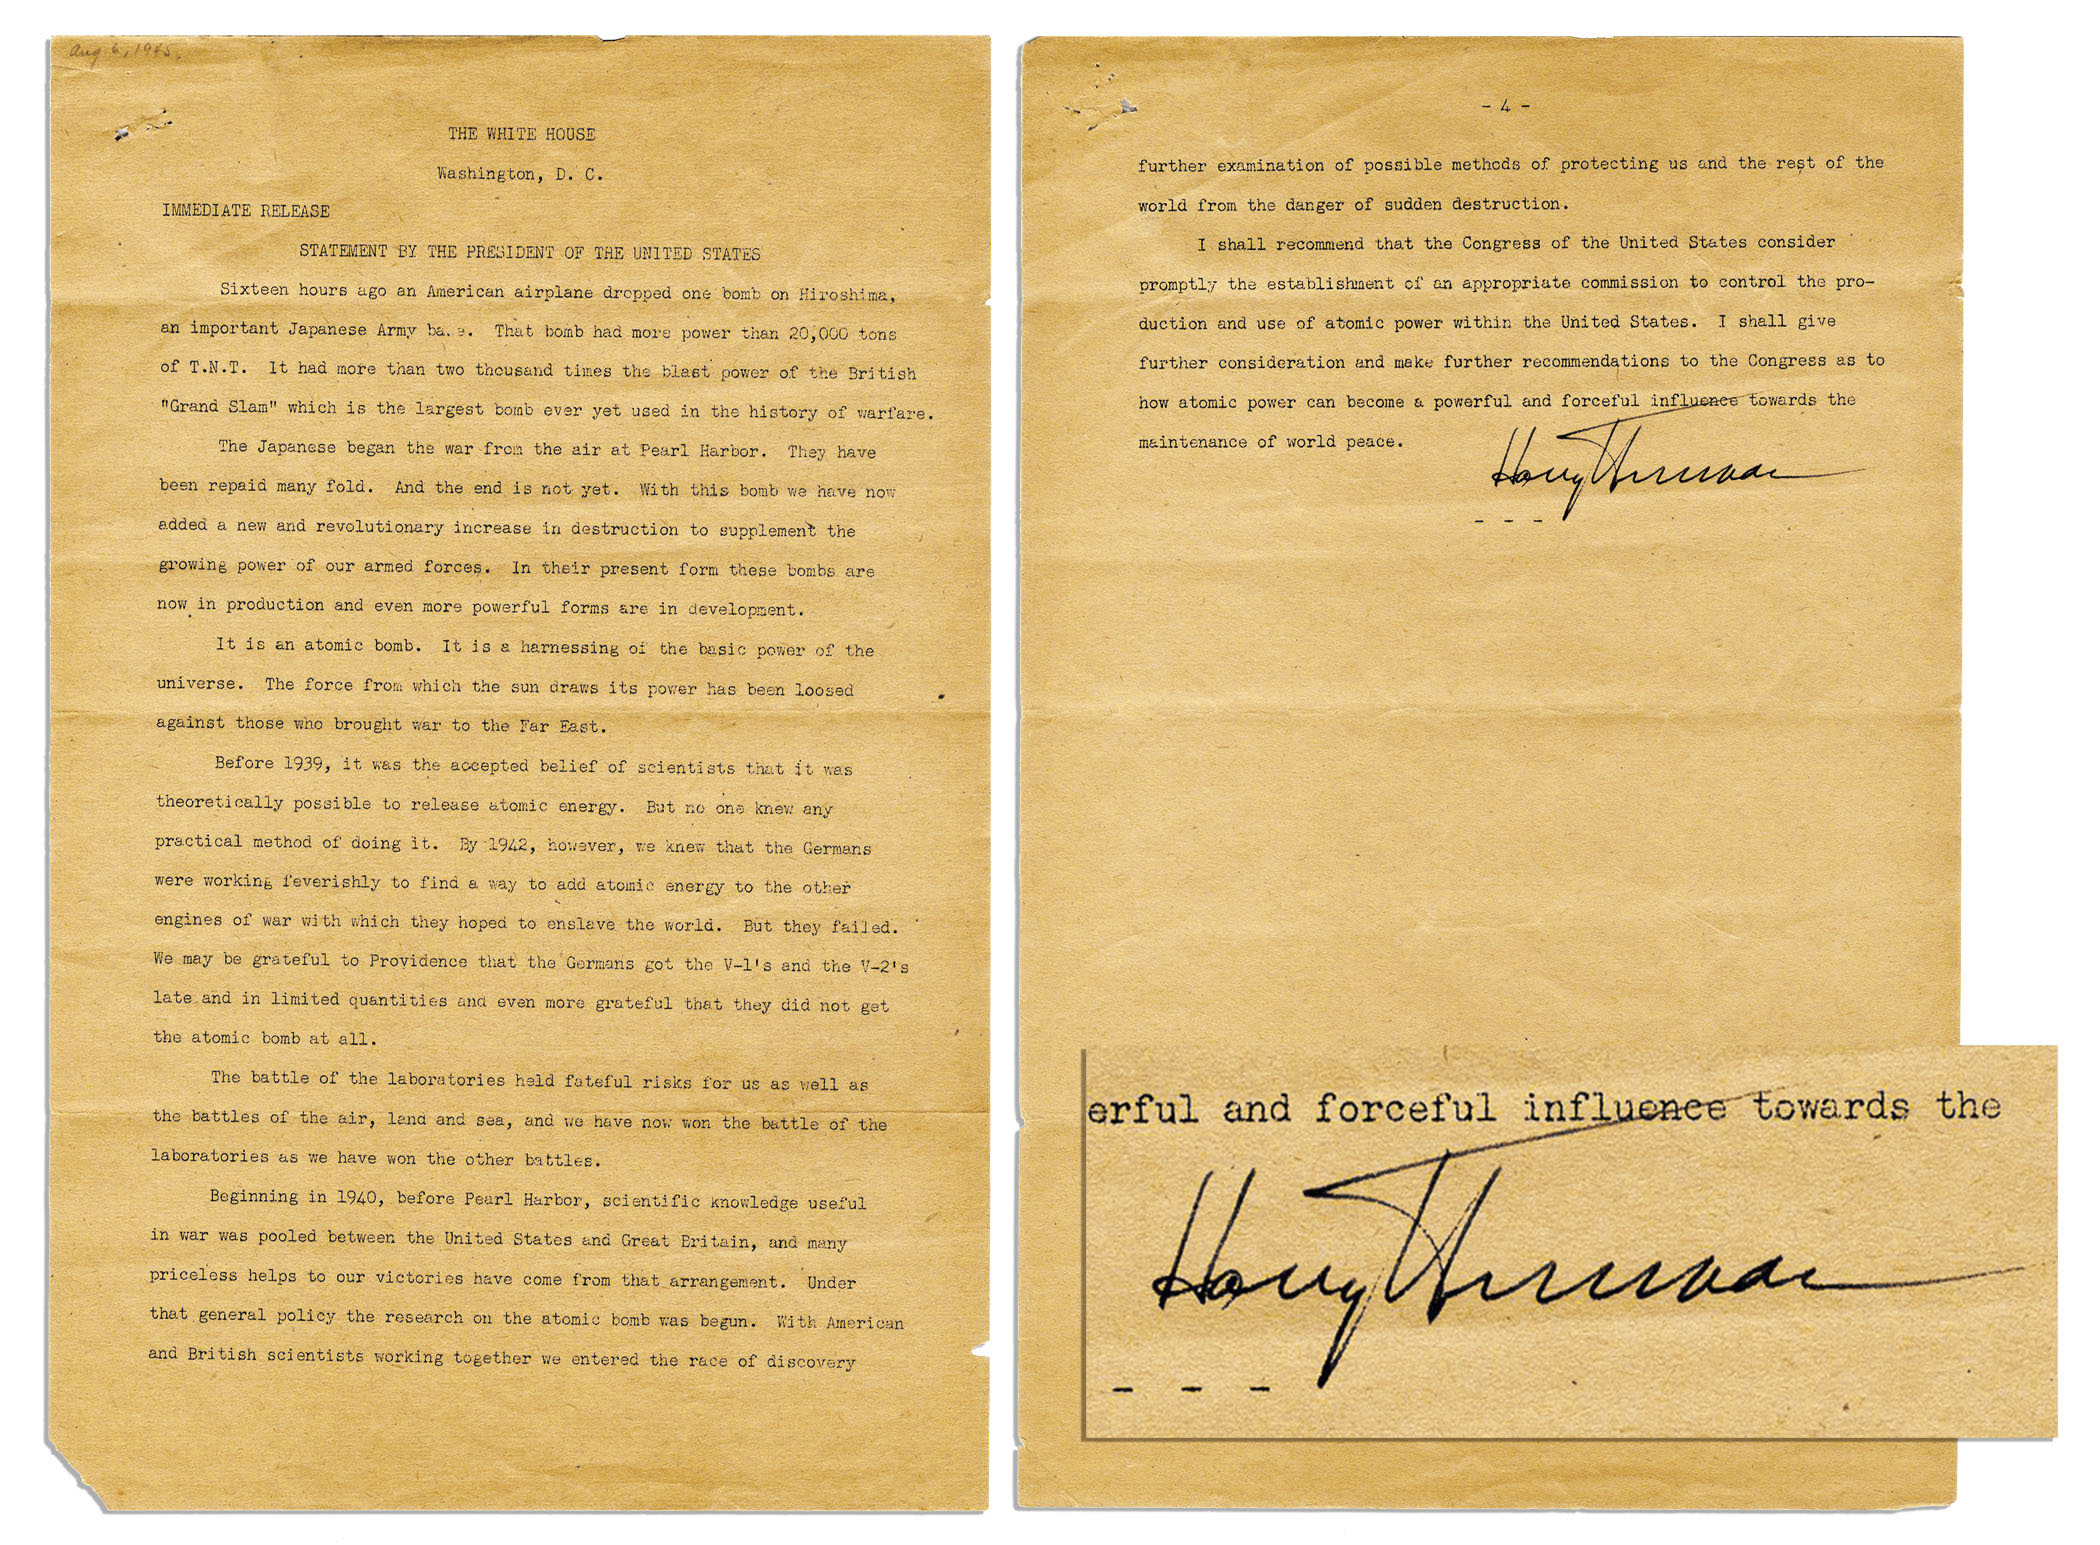 Aug 6, 1945.
THE WHITE HOUSE
Washington, D. C.
IMMEDIATE RELEASE
STATEMENT BY THE PRESIDENT OF THE UNITED STATES
Sixteen hours ago an American airplane dropped one bomb on Hiroshima,
an important Japanese Army base. That bomb had more power than 20,000 tons
of T.N.T. It had more than two thousand times the blast power of the British
"Grand Slam" which is the largest bomb ever yet used in the history of warfare.
The Japanese began the war from the air at Pearl Harbor. They have
been repaid many fold. And the end is not yet. With this bomb we have now
added a new and revolutionary increase in destruction to supplement the
growing power of our armed forces. In their present form these bombs are
now in production and even more powerful forms are in development.
It is an atomic bomb. It is a harnessing of the basic power of the
universe. The force from which the sun draws its power has been loosed
against those who brought war to the Far East.
Before 1939, it was the accepted belief of scientists that it was
theoretically possible to release atomic energy. But no one knew any
practical method of doing it. By 1942, however, we knew that the Germans
were working feverishly to find a way to add atomic energy to the other
engines of war with which they hoped to enslave the world. But they failed.
We may be grateful to Providence that the Germans got the V-1's and the V-2's
late and in limited quantities and even more grateful that they did not get
the atomic bomb at all.
The battle of the laboratories held fateful risks for us as well as
the battles of the air, land and sea, and we have now won the battle of the
laboratories as we have won the other battles.
Beginning in 1940, before Pearl Harbor, scientific knowledge useful
in war was pooled between the United States and Great Britain, and many
priceless helps to our victories have come from that arrangement. Under
that general policy the research on the atomic bomb was begun. With American
and British scientists working together we entered the race of discovery
- 4 -
further examination of possible methods of protecting us and the rest of the
world from the danger of sudden destruction.
I shall recommend that the Congress of the United States consider
promptly the establishment of an appropriate commission to control the pro-
duction and use of atomic power within the United States. I shall give
further consideration and make further recommendations to the Congress as to
how atomic power can become a powerful and forceful influence towards the
maintenance of world peace.
Harry Truman
- - -
erful and forceful influence towards the
Harry Truman
- - -